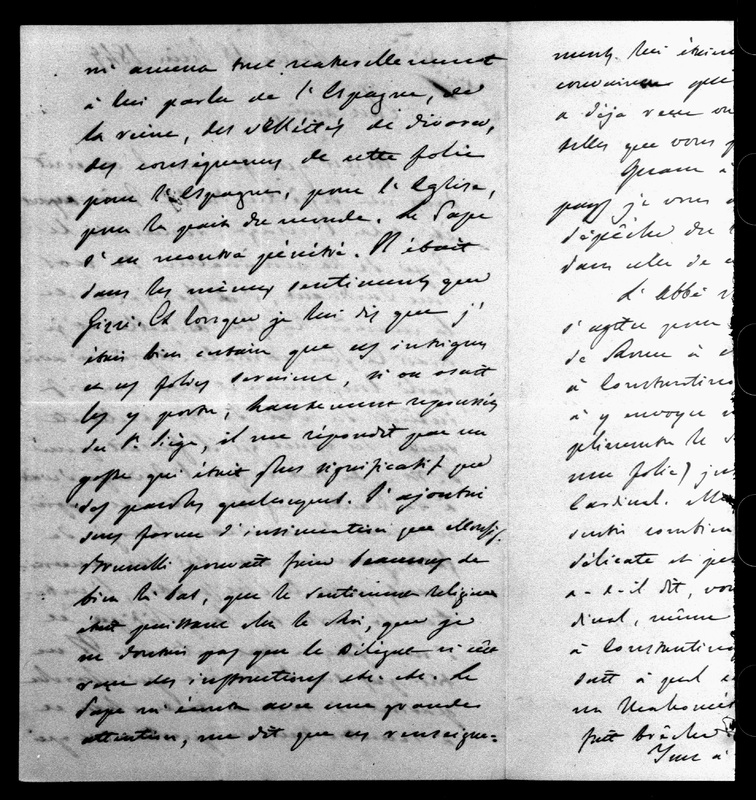 m'amena tout naturellement
à lui parler de l'Espagne, de
la reine, des velléités de divorce,
des conséquences de cette folie
pour l'Espagne, pour l'Eglise,
pour la paix du monde. Le Pape
s'en montra pénétré. Il était
dans les mêmes sentiments que
Gizzi. Et lorsque je lui dis que j'
étais bien certain que ces intrigues
et ces folies seraient, si on osait
les y porter, hautement repoussées
du St Siège, il me répondit par un
geste qui était plus significatif que
des paroles quelconques. J'ajoutai
sous forme d'insinuation que Monsig.
Brunelli pouvait faire beaucoup de
bien là bas, que le sentiment religieux
était puissant chez le Roi, que je
ne doutais pas que le Délégué n'eût
reçu des instructions etc. etc. Le
Pape m'écouta avec une grande
attention, me dit que ces renseigne=
ments lui étaient
convaincu que
a déjà reçu
telles que vous
Quant à
pays je vous
dépêche du
dans celle de
L'Abbé
s'agite pour
de Rome à
à Constantino
à y envoyer
pliamenter le
une folie) jus
Cardinal.
sentir combien
délicate et
a-t-il dit, vou
dinal, même
à Constantino
sait à quel
un Mahomét
fut